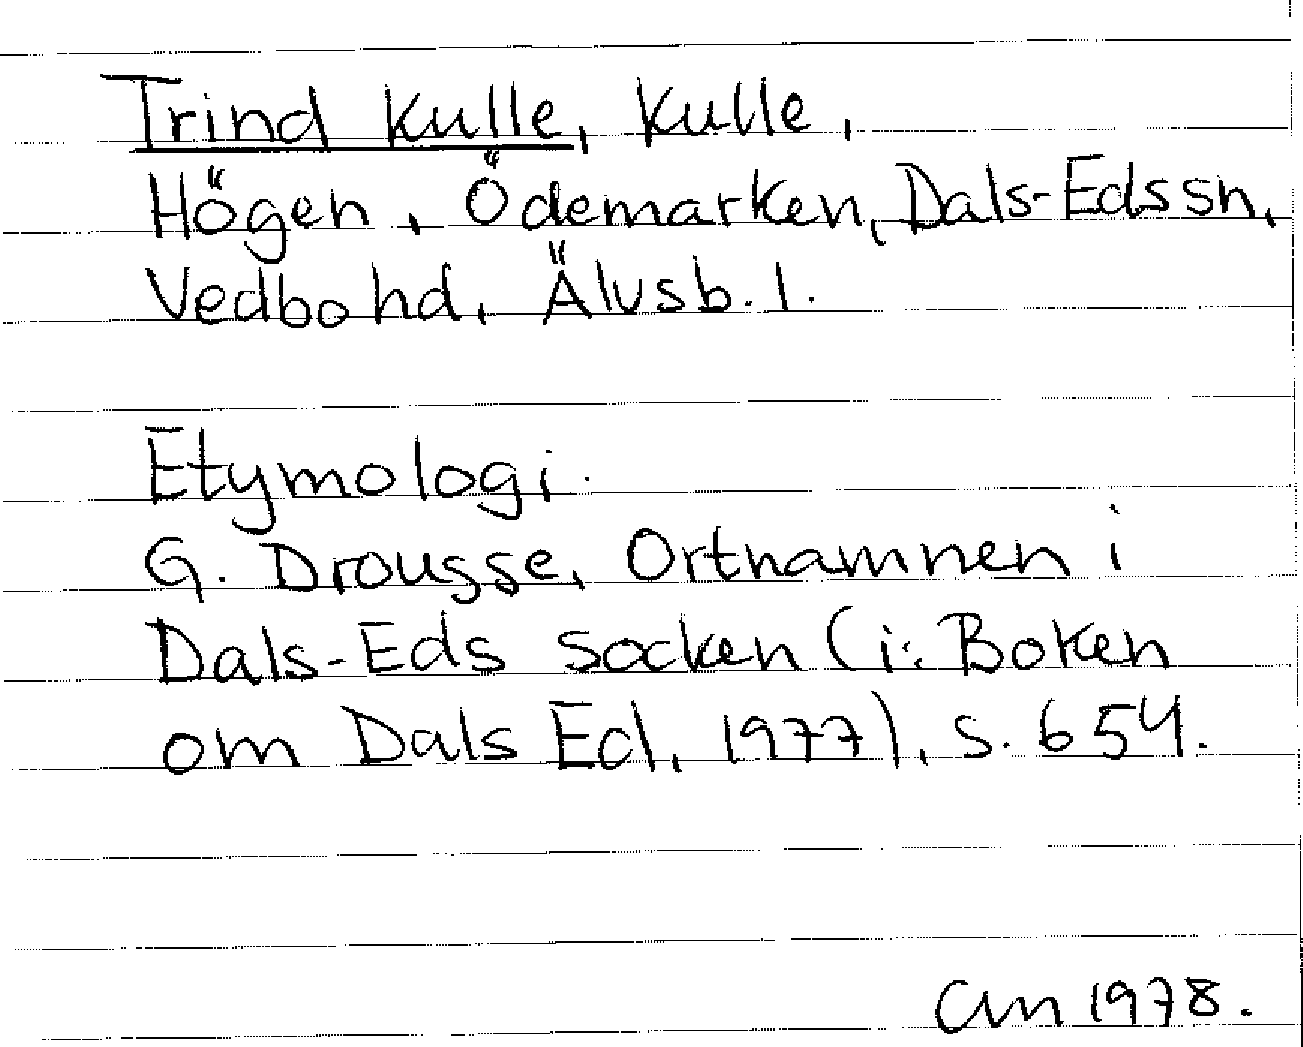 Trind kulle, kulle,
Högen, Ödemarken, Dals-Eds sn,
Vedbo hd, Älvsb. l.
Etymologi.
G. Drougge, Ortnamnen i
Dals-Eds socken (i: Boken
om Dals Ed, 1977), s. 654.
1978.